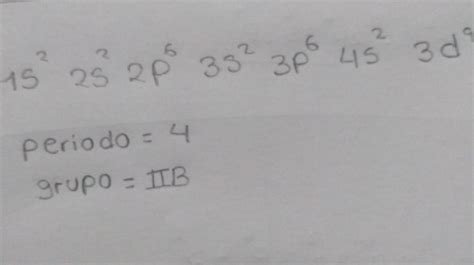 1s² 2s² 2p⁶ 3s² 3p⁶ 4s² 3d⁹
periodo = 4
grupo = IIB